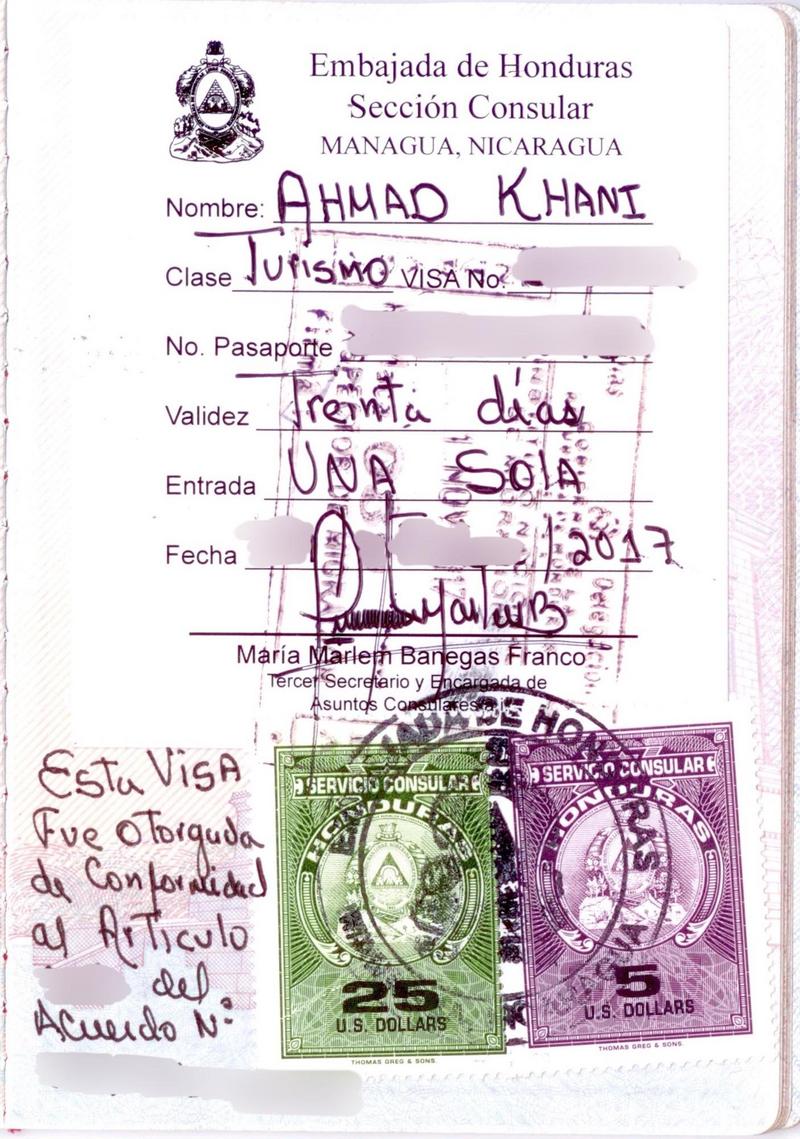 Embajada de Honduras
Sección Consular
MANAGUA, NICARAGUA
Nombre: AHMAD KHANI
Clase Turismo VISA No.
No. Pasaporte
Validez Treinta días
Entrada UNA SOlA
Fecha /2017
María Marlem Banegas Franco
Tercer Secretario y Encargada de
Asuntos Consulares a.i.
EMBAJADA DE HONDURAS
Esta VISA
Fue otorguda
de Conformidad
al ArTiculo
del
Acuerdo Nº
SERVICIO CONSULAR
HONDURAS
25
U.S. DOLLARS
THOMAS GREG & SONS.
SERVICIO CONSULAR
HONDURAS
5
U.S. DOLLARS
THOMAS GREG & SONS.